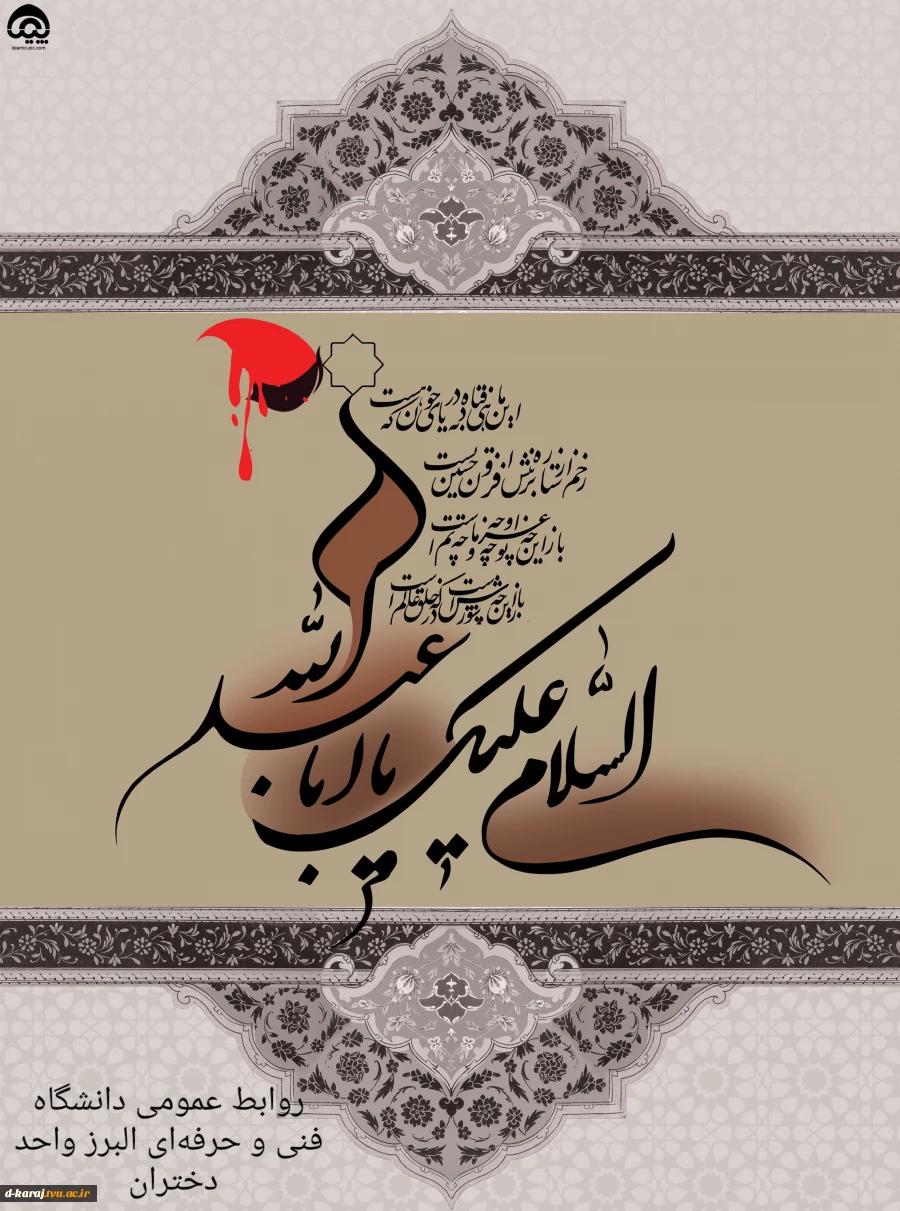 islamic-pic.com
این ماهی فتاده به دریای خون که هست
زخم از ستاره بر تنش افزون حسین تست
باز این چه نوحه و چه عزا و چه ماتم است
باز این چه شورش است که در خلق عالم است
السّلام علیک یا ابا عبد الله
روابط عمومی دانشگاه
فنی و حرفه‌ای البرز واحد
دختران
d-karaj.tvu.ac.ir